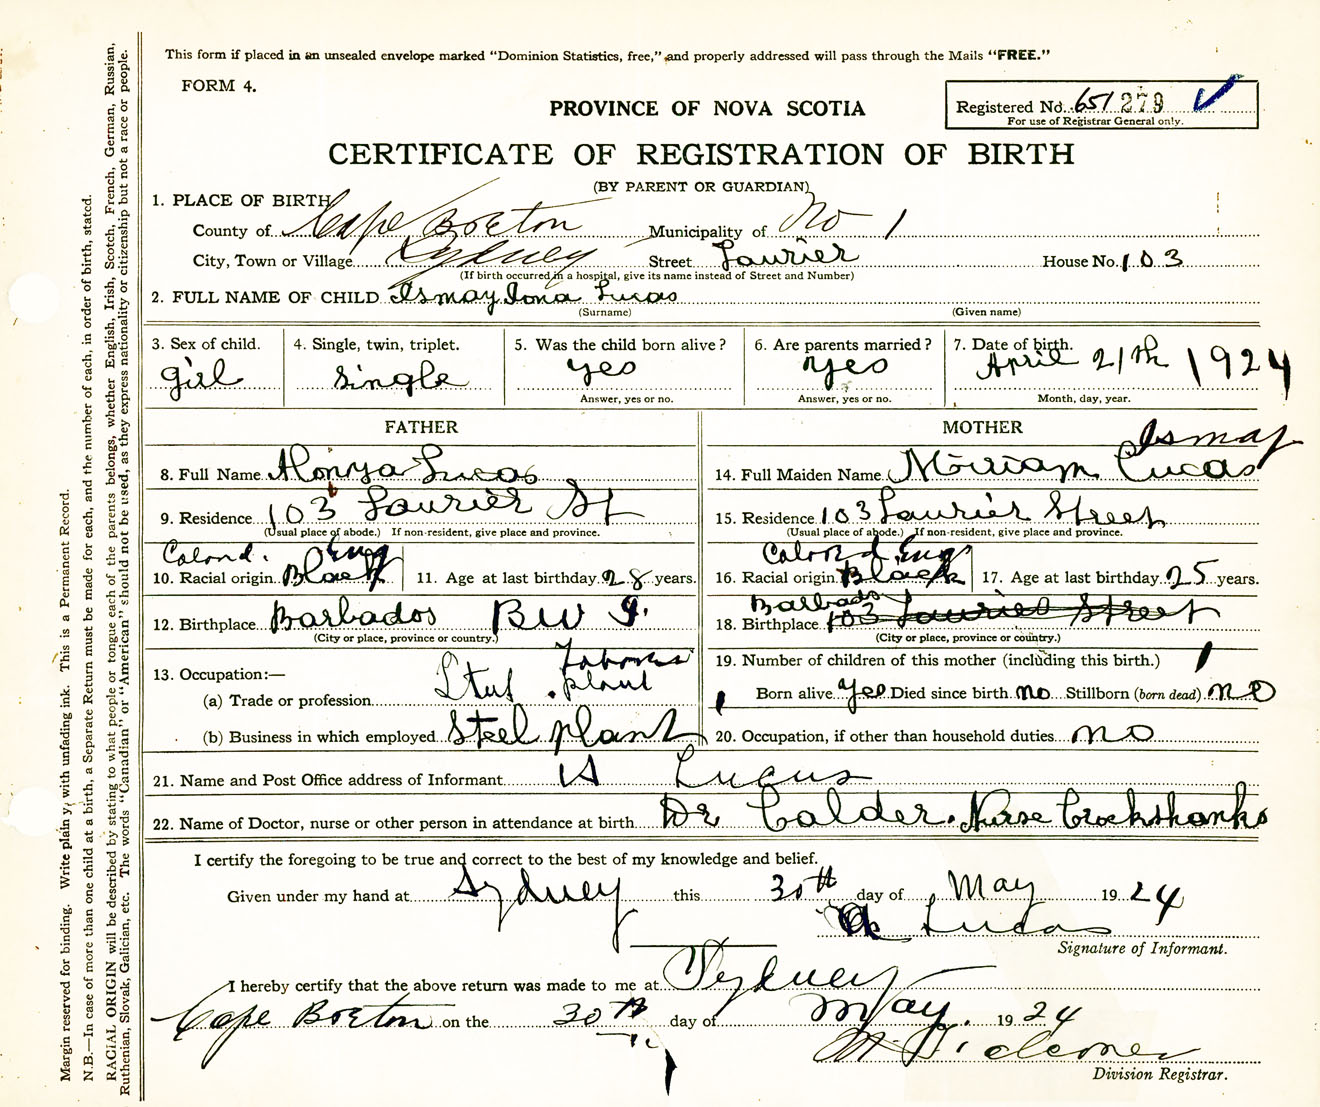 This form if placed in an unsealed envelope marked "Dominion Statistics, free," and properly addressed will pass through the Mails "FREE."
FORM 4.
PROVINCE OF NOVA SCOTIA
Registered No. 651279
For use of Registrar General only.
CERTIFICATE OF REGISTRATION OF BIRTH
(BY PARENT OR GUARDIAN)
1. PLACE OF BIRTH
County of Cape Breton Municipality of No 1
City, Town or Village Sydney Street Laurier House No. 103
(If birth occurred in a hospital, give its name instead of Street and Number)
2. FULL NAME OF CHILD Ismay Iona Lucas
(Surname) (Given name)
3. Sex of child. 4. Single, twin, triplet. 5. Was the child born alive? 6. Are parents married? 7. Date of birth.
girl single yes yes April 21th 1924
Answer, yes or no. Answer, yes or no. Month, day, year.
FATHER MOTHER
Ismay
8. Full Name Alonza Lucas 14. Full Maiden Name Miriam Lucas
9. Residence 103 Laurier St 15. Residence 103 Laurier Street
(Usual place of abode.) If non-resident, give place and province. (Usual place of abode.) If non-resident, give place and province.
Colord. Eng Colord Eng
10. Racial origin Black 11. Age at last birthday 28 years. 16. Racial origin Black 17. Age at last birthday 25 years.
Barbados
12. Birthplace Barbados BWI. 18. Birthplace 103 Laurier Street
(City or place, province or country.) (City or place, province or country.)
19. Number of children of this mother (including this birth.) 1
13. Occupation:— Laborer
(a) Trade or profession plant 1 Born alive yes Died since birth no Stillborn (born dead) no
(b) Business in which employed Steel plant 20. Occupation, if other than household duties no
21. Name and Post Office address of Informant A Lucus
22. Name of Doctor, nurse or other person in attendance at birth Dr Calder. Nurse Crockshanks
I certify the foregoing to be true and correct to the best of my knowledge and belief.
Given under my hand at Sydney this 30th day of May 1924
A Lucas
Signature of Informant.
I hereby certify that the above return was made to me at Sydney
Cape Breton on the 30th day of May. 1924
Division Registrar.
Margin reserved for binding. Write plainly, with unfading ink. This is a Permanent Record.
N.B.—In case of more than one child at a birth, a Separate Return must be made for each, and the number of each, in order of birth, stated.
RACIAL ORIGIN will be described by stating to what people or tongue each of the parents belongs, whether English, Irish, Scotch, French, German, Russian,
Ruthenian, Slovak, Galician, etc. The words "Canadian" or "American" should not be used, as they express nationality or citizenship but not a race or people.